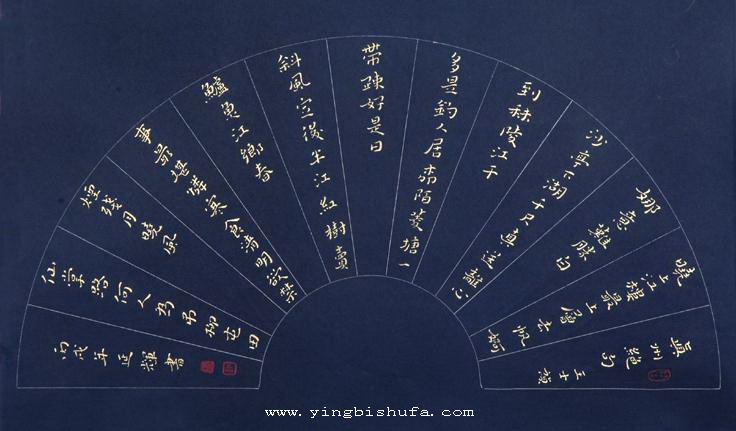 真州絕句 王士禎
曉上江樓最上層去帆婀
娜意難勝白
沙亭下潮千尺直送離心
到秣陵江干
多是釣人居柳陌菱塘一
帶疎好是日
斜風定後半江紅樹賣
鱸魚江鄉春
事最堪憐寒食清明欲禁
煙殘月曉風
仙掌路何人為弔柳屯田
丙戌年延輝書
www.yingbishufa.com